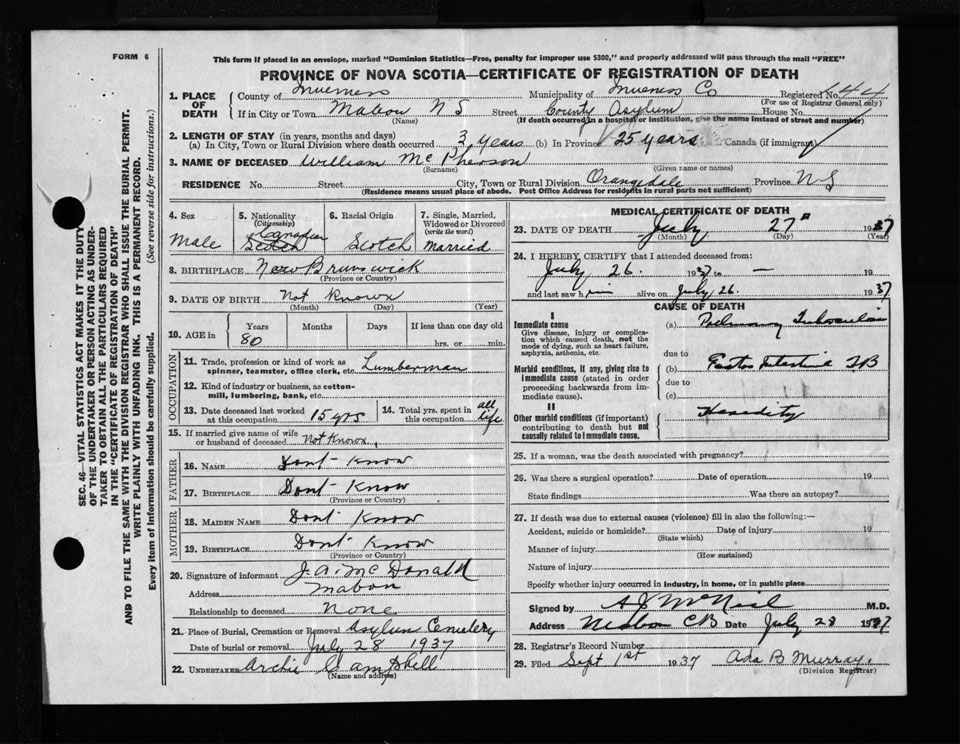 FORM 6
This form if placed in an envelope, marked "Dominion Statistics—Free, penalty for improper use $300," and properly addressed will pass through the mail "FREE"
PROVINCE OF NOVA SCOTIA—CERTIFICATE OF REGISTRATION OF DEATH
1. PLACE OF DEATH County of Inverness Municipality of Inverness Co Registered No. 44
(For use of Registrar General only)
If in City or Town Mabou N S Street County Asylum House No.
(Name) (If death occurred in a hospital or institution, give the name instead of street and number)
2. LENGTH OF STAY (in years, months and days)
(a) In City, Town or Rural Division where death occurred 3 years (b) In Province 25 years Canada (if immigrant)
3. NAME OF DECEASED William McPherson
(Surname) (Given name or names)
RESIDENCE No. Street City, Town or Rural Division Orangedale Province N S
(Residence means usual place of abode. Post Office Address for residents in rural parts not sufficient)
4. Sex Male
5. Nationality (Citizenship) Canadian Scotch
6. Racial Origin Scotch
7. Single, Married, Widowed or Divorced (write the word) Married
8. BIRTHPLACE New Brunswick
(Province or Country)
9. DATE OF BIRTH Not Known
(Month) (Day) (Year)
10. AGE in Years Months Days If less than one day old
80 hrs. or min.
OCCUPATION
11. Trade, profession or kind of work as spinner, teamster, office clerk, etc. Lumberman
12. Kind of industry or business, as cotton-mill, lumbering, bank, etc.
13. Date deceased last worked at this occupation 15 yrs
14. Total yrs. spent in this occupation all Life
15. If married give name of wife or husband of deceased Not Known
FATHER
16. NAME Dont Know
17. BIRTHPLACE Dont Know
(Province or Country)
MOTHER
18. MAIDEN NAME Dont Know
19. BIRTHPLACE Dont Know
(Province or Country)
20. Signature of informant J. A. McDonald
Address Mabou
Relationship to deceased None
21. Place of Burial, Cremation or Removal Asylum Cemetery
Date of burial or removal July 28 1937
22. UNDERTAKER Archie Campbell
(Name and address)
MEDICAL CERTIFICATE OF DEATH
23. DATE OF DEATH July 27 1937
(Month) (Day) (Year)
24. I HEREBY CERTIFY that I attended deceased from:
July 26 1937 to — 19
and last saw him alive on July 26 1937
CAUSE OF DEATH
I
Immediate cause
Give disease, injury or complication which caused death, not the mode of dying, such as heart failure, asphyxia, asthenia, etc.
(a) Pulmonary Tuberculosis
due to
Morbid conditions, if any, giving rise to immediate cause (stated in order proceeding backwards from immediate cause).
(b) Intestinal TB
due to
(c)
II
Other morbid conditions (if important) contributing to death but not causally related to immediate cause.
Heredity
25. If a woman, was the death associated with pregnancy?
26. Was there a surgical operation? Date of operation 19
State findings Was there an autopsy?
27. If death was due to external causes (violence) fill in also the following:—
Accident, suicide or homicide? Date of injury 19
(State which)
Manner of injury
(How sustained)
Nature of injury
Specify whether injury occurred in industry, in home, or in public place
Signed by A J McNeil M.D.
Address CB Date July 28 1937
28. Registrar's Record Number
29. Filed Sept 1st 1937 Ada B Murray.
(Division Registrar)
SEC. 46—VITAL STATISTICS ACT MAKES IT THE DUTY
OF THE UNDERTAKER OR PERSON ACTING AS UNDER-
TAKER TO OBTAIN ALL THE PARTICULARS REQUIRED
IN THE "CERTIFICATE OF REGISTRATION OF DEATH"
AND TO FILE THE SAME WITH THE DIVISION REGISTRAR WHO SHALL ISSUE THE BURIAL PERMIT.
WRITE PLAINLY WITH UNFADING INK. THIS IS A PERMANENT RECORD.
Every item of information should be carefully supplied. (See reverse side for instructions.)